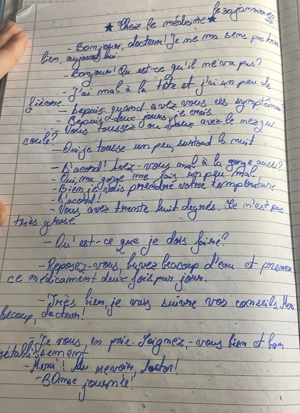 le 30 janvier
★ Chez le médecin ★
- Bonjour, docteur! Je me me sens pas très
bien, aujourd'hui
- Bonjour! Qu'est-ce qu'il ne va pas?
- J'ai mal à la tête et j'ai un peu de
fièvre.
- Depuis quand avez vous ces symptômes?
- Depuis deux jours, je crois
- Vous toussez? ou avez le nez qui
coule?
- Oui, je tousse un peu, surtout la nuit
- D'accord! Avez-vous mal à la gorge aussi?
- Oui, ma gorge me fais un peu mal.
- Bien, je vais prendre votre température.
- D'accord!
- Vous avez trente huit degrés. Ce n'est pas
très grave
- Qu'est-ce que je dois faire?
- Reposez-vous, buvez beacoup d'eau et prenez
ce médicament deux fois par jour.
- Très bien, je vais suivre vos conseils, Merci
becoup, docteur!
- Je vous, en prie. Soignez-vous bien et bon
rétablissement
- Merci! Au revoir, Doctor!
- Bonne journée!